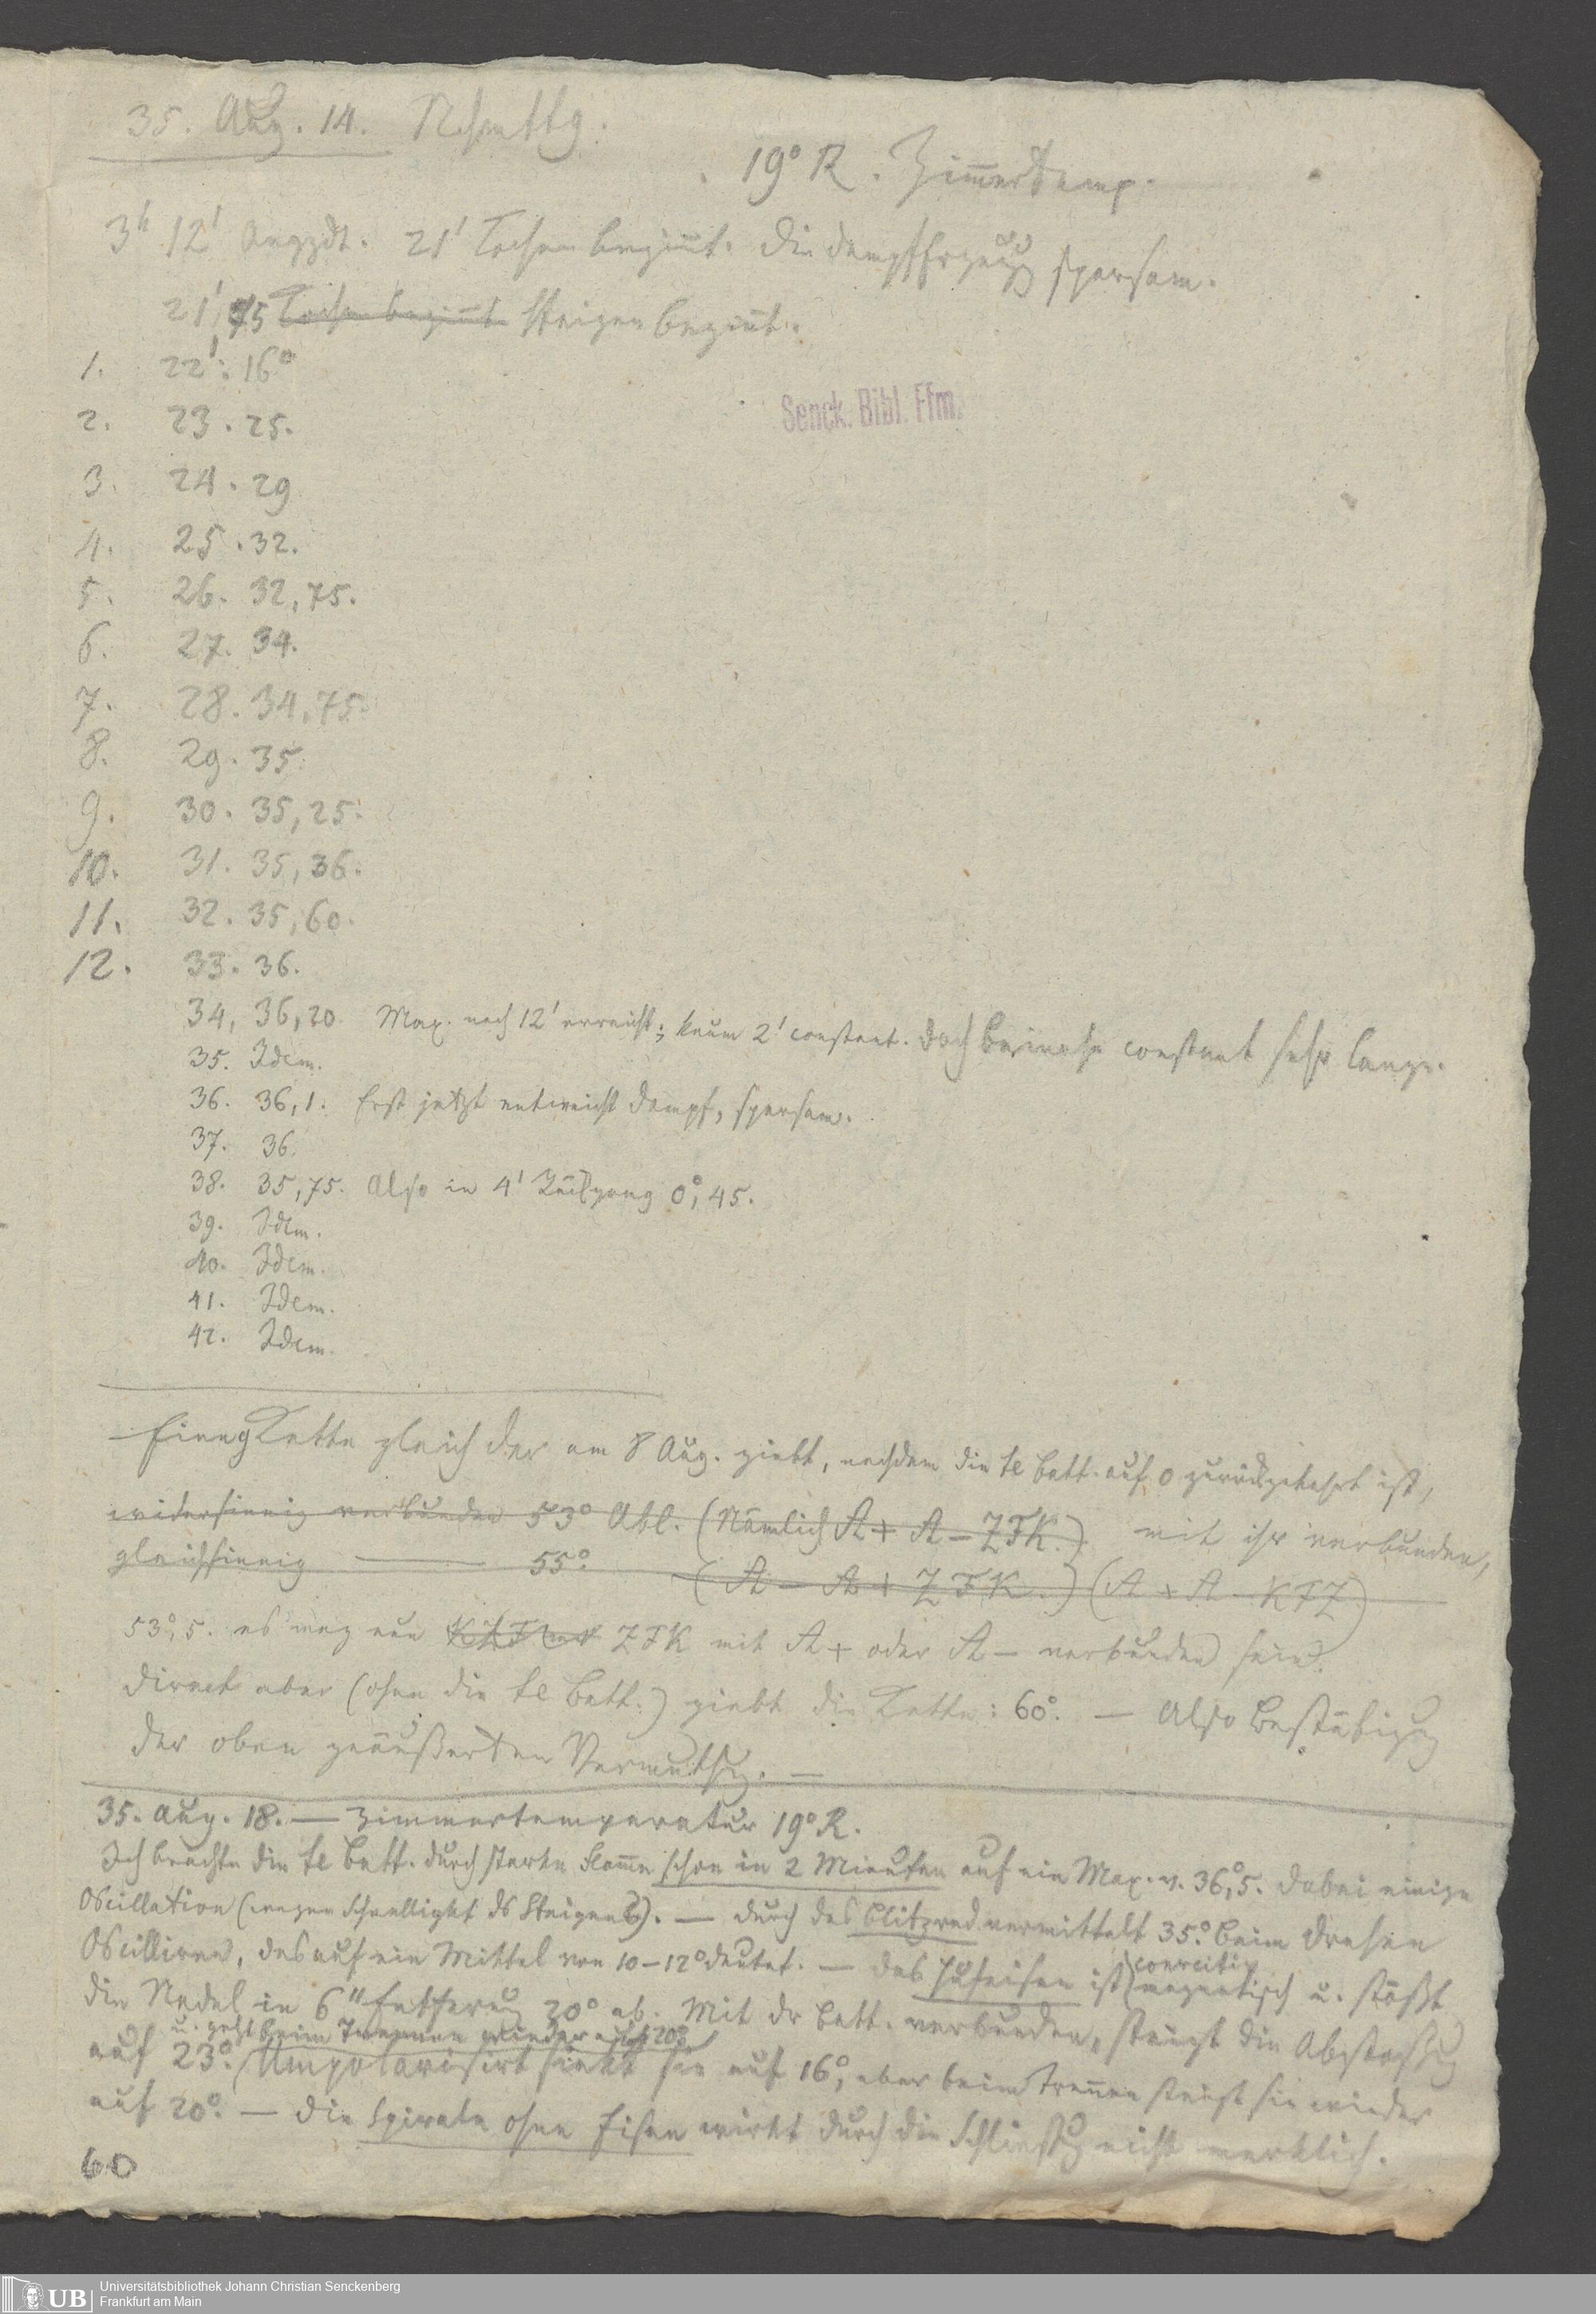 35. Aug. 14. Nchmttg.
19° R. Zim̄ertemp.
3h 12' Angzdt. 21' Kochen begiñt. Die Dampferzeug sparsam.
21',75 Kochen begiñt Steigen begiñt.
1. 22': 16°
2. 23. 25.
3. 24. 29
4. 25. 32.
5. 26. 32,75.
6. 27. 34.
7. 28. 34,75.
8. 29. 35.
9. 30. 35,25.
10. 31. 35,36.
11. 32. 35,60.
12. 33. 36.
34, 36,20 Max. nach 12' erreicht; kaum 2' constant. Doch beinahe constant sehr lange.
35. Idem.
36. 36,1. Erst jetzt entweicht Dampf, sparsam.
37. 36.
38. 35,75. Also in 4' Rückgang 0°,45.
39. Idem.
40. Idem.
41. Idem.
42. Idem.
Kette gleich der am 8 Aug. giebt, nachdem die te Batt. auf 0 zurückgekehrt ist,
widersinnig verbunden 53° Abl. (Nämlich A+ A- ZFK.) mit ihr verbunden,
gleichsinnig — 55° (A- A+ ZFK.) (A+A- KFZ)
53°,5. es mag nun ZFK mit A+ oder A- verbunden sein.
Direct aber (ohne die te Batt.) giebt die Kette: 60°. — Also Bestätigug
der oben geäußerten Vermuthg. —
35. Aug. 18. — Zimmertemperatur 19° R.
Ich brachte die te Batt. durch starke Flam̄e schon in 2 Minuten auf ein Max. v. 36°,5. Dabei einige
Oscillation (wegen Schnelligkt ds Steigens). — Durch das Blitzrad vermittelt 35°. Beim Drehen
Oscilliren, das auf ein Mittel von 10–12° deutet. — Das Hufeisen ist coercitiv magnetisch u. stößt
die Nadel in 6" Entferng 20° ab. Mit dr Batt. verbunden, steigt die Abstoßg
u. geht beim Trennen wieder auf 20°
auf 23°. Umpolarisirt sinkt sie auf 16°, aber beim Treñen steigt sie wieder
auf 20°. — Die Spirale ohne Eisen wirkt durch die Schließg nicht merklich.
60
Senck. Bibl. Ffm.
UB
Universitätsbibliothek Johann Christian Senckenberg
Frankfurt am Main